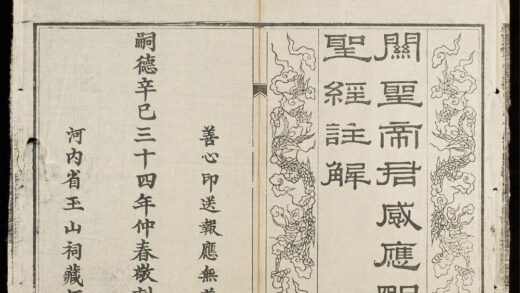 關聖帝君感應明
聖經註解
善心印送報應無
嗣德辛巳三十四年仲春敬
河内省玉山祠藏